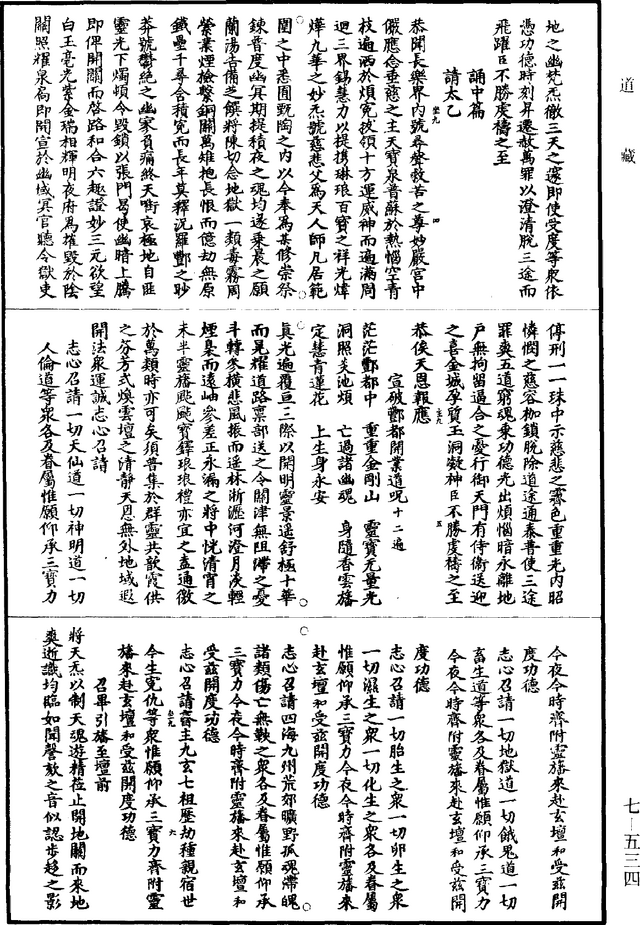 道藏
地之幽梵炁徹三天之邃即使受度等衆依
憑功德時刻昇遷赦萬罪以澄清脫三途而
飛躍臣不勝虔禱之至
誦中篇
請太乙
恭聞長樂界內號尋聲救苦之尊妙嚴宮中
儼應念垂慈之主天寶泉普蘇於熱惱空青
枝遍洒於煩冤披領十方運威神而遍滿周
迴三界錫慧力以提攜琳琅百寶之祥光煒
燁九華之妙炁號慈悲父為天人師凡居範
圍之中悉囿甄陶之內以今奉為某修崇祭
鍊普度幽冥期提積夜之魂均遂乘晨之願
蘭湯告備芝饌將陳切念地獄一類毒霧周
縈業煙檢繫銅關萬雉抱長恨而億劫無原
鐵壘千尋含積冤而長年莫釋況羅酆之眇
莽號鬱絕之幽冢負痛終天啣哀極地自匪
靈光下燭頓令毀鎖以張門曷使幽暗上騰
即俾開關而啓路和合六趣證妙三元欲望
白玉毫光紫金瑞相輝明夜府為摧毀於陰
關照耀泉扃即開宣於幽域冥官聽令獄吏
停刑一一珠中示慈悲之靄色重重光內昭
憐憫之慈容枷鎖脫除道途通泰普使三途
罪爽五道窮魂乘功德光出煩惱暗永離地
戶無拘留遏合之憂行御天門有侍衛送迎
之喜金城孕質玉洞凝神臣不勝虔禱之至
恭俟天恩報應
宣破酆都開業道呪十二遍
茫茫酆都中 重重金剛山 靈寶无量光
洞照炎池煩 亡過諸幽魂 身隨香雲旛
定慧青蓮花 上生身永安
真光遍覆亘三際以開明靈景遥舒極十華
而晃耀道路稟部送之令關津無阻滯之憂
斗轉參橫悲風振而遥林淅瀝河澄月淡輕
煙裊而遠岫參差正永漏之將中恍清宵之
未半靈旛颭颭寶鐸琅琅禮亦宜之盍通微
於萬類時亦可矣須普集於群靈共歆霞供
之芬方式煥雲壇之清静天恩無外地域遐
開法衆運誠志心召請
志心召請一切天仙道一切神明道一切
人倫道等衆各及眷屬惟願仰承三寶力
今夜今時齊附靈旛來赴玄壇和受茲開
度功德
志心召請一切地獄道一切餓鬼道一切
畜生道等衆各及眷屬惟願仰承三寶力
今夜今時齊附靈旛來赴玄壇和受茲開
度功德
志心召請一切胎生之衆一切卵生之衆
一切濕生之衆一切化生之衆各及眷屬
惟願仰承三寶力今夜今時齊附靈旛來
赴玄壇和受茲開度功德
志心召請四海九州荒郊曠野孤魂滯魄
諸類傷亡無歎之衆各及眷屬惟願仰承
三寶力今夜今時齊附靈旛來赴玄壇和
受茲開度功德
志心召請齋主九玄七祖歷劫種親宿世
今生冤仇等衆惟願仰承三寶力齊附靈
旛來赴玄壇和受茲開度功德
召畢引旛至壇前
將天炁以制天魂遊精莅止開地關而來地
爽逝識均臨如聞謦欬之音似認步趍之影
七—五三四